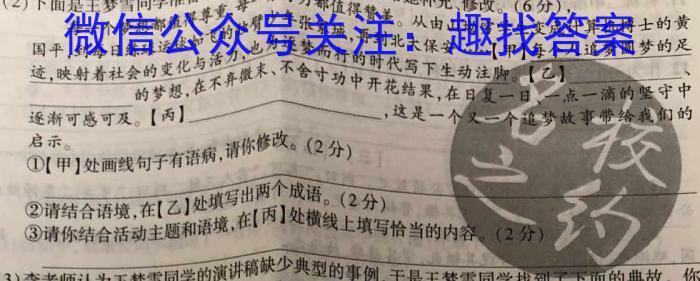 (2)下面是王梦雪同学准备
微信公众号关注：趣找答案
国平
迹，映射着社会的变化与活力，也为
而行的时代写下生动注脚。【乙】
的梦想，在不弃微末、不舍寸功中开花结果，在日复一日、一点一滴的坚守中
逐渐可感可及。【丙】 ，这是一个又一个追梦故事带给我们的
启示。
①【甲】处画线句子有语病，请你修改。(2分)
②请结合语境，在【乙】处填写出两个成语。(2分)
③请你结合活动主题和语境，在【丙】处横线上填写恰当的内容。(2分)
名校之约
3)李老师认为王梦雪同学的演讲稿缺少典型的事例，于是王梦雪同学找到了下面的典故。你